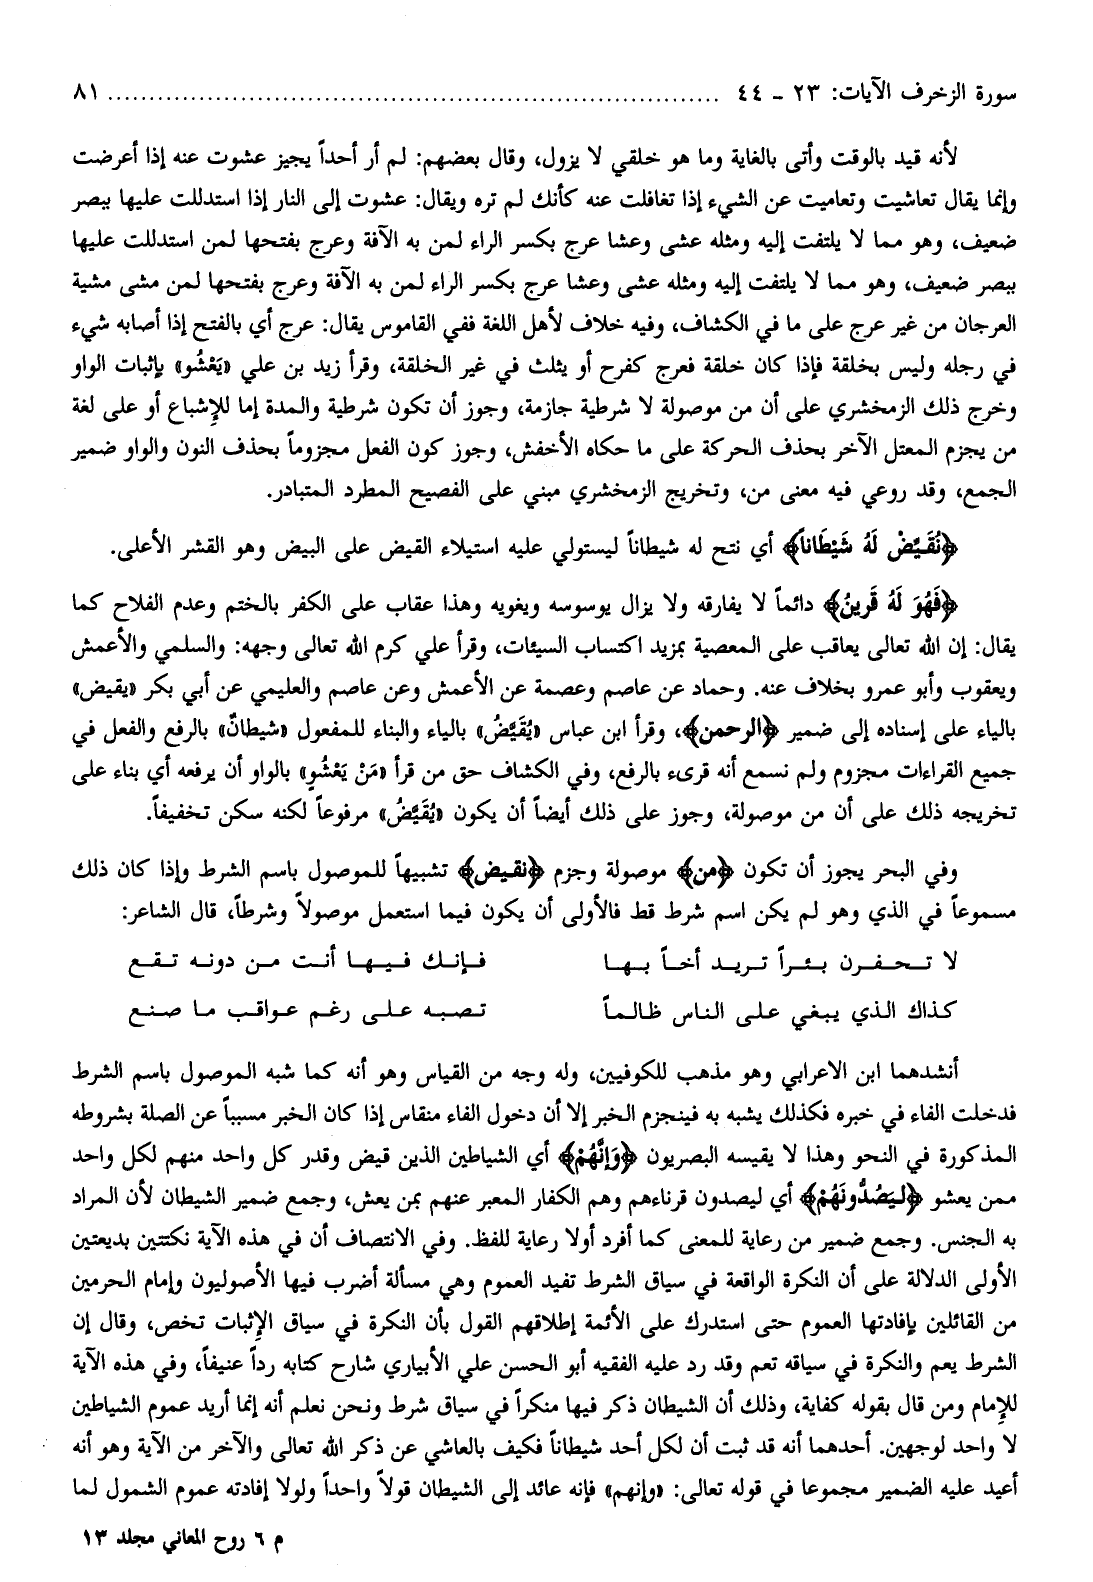 سورة الزخرف الآيات: ٢٣ ـ ٤٤ ........................................................................... ٨١
لأنه قيد بالوقت وأتى بالغاية وما هو خلقي لا يزول، وقال بعضهم: لم أر أحداً يجيز عشوت عنه إذا أعرضت
وإنما يقال تعاشيت وتعاميت عن الشيء إذا تغافلت عنه كأنك لم تره ويقال: عشوت إلى النار إذا استدللت عليها ببصر
ضعيف، وهو مما لا يلتفت إليه ومثله عشى وعشا عرج بكسر الراء لمن به الآفة وعرج بفتحها لمن استدللت عليها
ببصر ضعيف، وهو مما لا يلتفت إليه ومثله عشى وعشا عرج بكسر الراء لمن به الآفة وعرج بفتحها لمن مشى مشية
العرجان من غير عرج على ما في الكشاف، وفيه خلاف لأهل اللغة ففي القاموس يقال: عرج أي بالفتح إذا أصابه شيء
في رجله وليس بخلقة فإذا كان خلقة فعرج كفرح أو يثلث في غير الخلقة، وقرأ زيد بن علي «يَعْشُو» بإثبات الواو
وخرج ذلك الزمخشري على أن من موصولة لا شرطية جازمة، وجوز أن تكون شرطية والمدة إما للإشباع أو على لغة
من يجزم المعتل الآخر بحذف الحركة على ما حكاه الأخفش، وجوز كون الفعل مجزوماً بحذف النون والواو ضمير
الجمع، وقد روعي فيه معنى من، وتخريج الزمخشري مبني على الفصيح المطرد المتبادر.
﴿نُقَيِّضْ لَهُ شَيْطَاناً﴾ أي نتح له شيطاناً ليستولي عليه استيلاء القيض على البيض وهو القشر الأعلى.
﴿فَهُوَ لَهُ قَرِينٌ﴾ دائماً لا يفارقه ولا يزال يوسوسه ويغويه وهذا عقاب على الكفر بالختم وعدم الفلاح كما
يقال: إن الله تعالى يعاقب على المعصية بمزيد اكتساب السيئات، وقرأ علي كرم الله تعالى وجهه: والسلمي والأعمش
ويعقوب وأبو عمرو بخلاف عنه. وحماد عن عاصم وعصمة عن الأعمش وعن عاصم والعليمي عن أبي بكر «يقيض»
بالياء على إسناده إلى ضمير ﴿الرحمن﴾، وقرأ ابن عباس «يُقَيَّضُ» بالياء والبناء للمفعول «شيطانٌ» بالرفع والفعل في
جميع القراءات مجزوم ولم نسمع أنه قرىء بالرفع، وفي الكشاف حق من قرأ «مَنْ يَعْشُو» بالواو أن يرفعه أي بناء على
تخريجه ذلك على أن من موصولة، وجوز على ذلك أيضاً أن يكون «يُقَيَّضُ» مرفوعاً لكنه سكن تخفيفاً.
وفي البحر يجوز أن تكون ﴿من﴾ موصولة وجزم ﴿نقيض﴾ تشبيهاً للموصول باسم الشرط وإذا كان ذلك
مسموعاً في الذي وهو لم يكن اسم شرط قط فالأولى أن يكون فيما استعمل موصولاً وشرطاً، قال الشاعر:
لا تحفرن بئراً تريد أخاً بها فإنك فيها أنت من دونه تقع
كذاك الذي يبغي على الناس ظالماً تصبه على رغم عواقب ما صنع
أنشدهما ابن الاعرابي وهو مذهب للكوفيين، وله وجه من القياس وهو أنه كما شبه الموصول باسم الشرط
فدخلت الفاء في خبره فكذلك يشبه به فينجزم الخبر إلا أن دخول الفاء منقاس إذا كان الخبر مسبباً عن الصلة بشروطه
المذكورة في النحو وهذا لا يقيسه البصريون ﴿وَإِنَّهُمْ﴾ أي الشياطين الذين قيض وقدر كل واحد منهم لكل واحد
ممن يعشو ﴿لَيَصُدُّونَهُمْ﴾ أي ليصدون قرناءهم وهم الكفار المعبر عنهم بمن يعش، وجمع ضمير الشيطان لأن المراد
به الجنس. وجمع ضمير من رعاية للمعنى كما أفرد أولا رعاية للفظ. وفي الانتصاف أن في هذه الآية نكتتين بديعتين
الأولى الدلالة على أن النكرة الواقعة في سياق الشرط تفيد العموم وهي مسألة أضرب فيها الأصوليون وإمام الحرمين
من القائلين بإفادتها العموم حتى استدرك على الأئمة إطلاقهم القول بأن النكرة في سياق الإثبات تخص، وقال إن
الشرط يعم والنكرة في سياقه تعم وقد رد عليه الفقيه أبو الحسن علي الأبياري شارح كتابه رداً عنيفاً، وفي هذه الآية
للإمام ومن قال بقوله كفاية، وذلك أن الشيطان ذكر فيها منكراً في سياق شرط ونحن نعلم أنه إنما أريد عموم الشياطين
لا واحد لوجهين. أحدهما أنه قد ثبت أن لكل أحد شيطاناً فكيف بالعاشي عن ذكر الله تعالى والآخر من الآية وهو أنه
أعيد عليه الضمير مجموعا في قوله تعالى: «وإنهم» فإنه عائد إلى الشيطان قولاً واحداً ولولا إفادته عموم الشمول لما
م ٦ روح المعاني مجلد ١٣